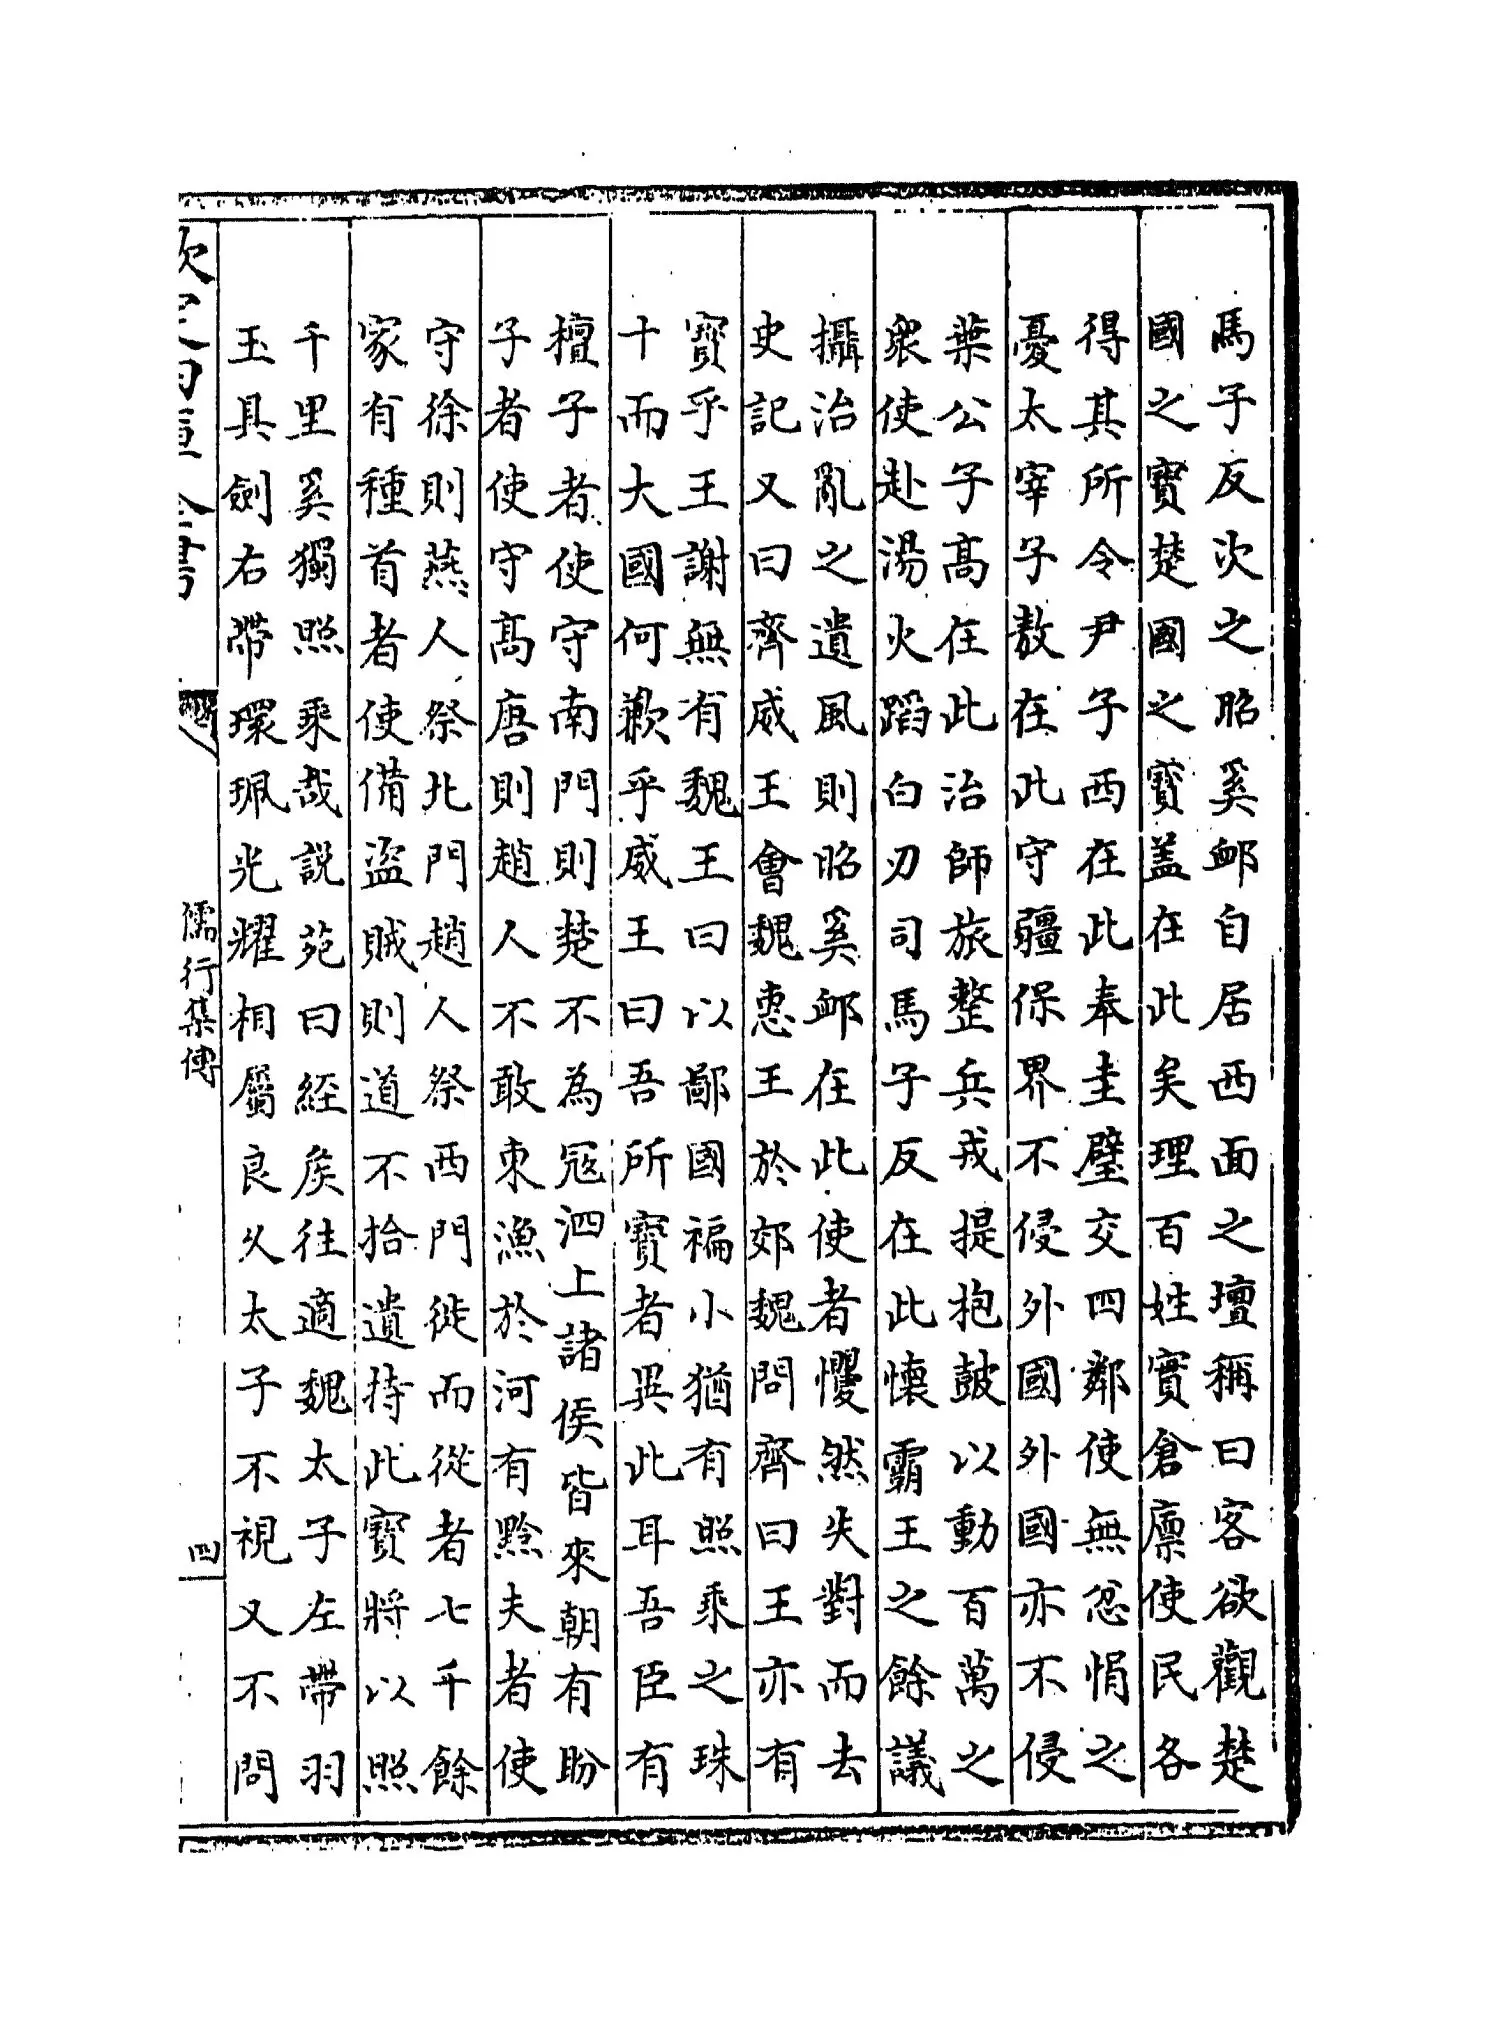 馬子反次之昭奚䘏自居西面之壇稱曰客欲觀楚
國之寳楚國之寳盖在此矣理百姓實倉廩使民各
得其所令尹子西在此奉圭璧交四鄰使無忿悁之
憂太宰子敖在此守疆保界不侵外國外國亦不侵
葉公子髙在此治師旅整兵戎提抱鼓以動百萬之
衆使赴湯火蹈白刃司馬子反在此懐霸王之餘議
攝治亂之遺風則昭奚䘏在此使者懼然失對而去
史記又曰齊威王會魏惠王於郊魏問齊曰王亦有
寳乎王謝無有魏王曰以鄙國褊小猶有照乘之珠
十而大國何歉乎威王曰吾所寳者異此耳吾臣有
檀子者使守南門則楚不為冦泗上諸侯皆來朝有盼
子者使守髙唐則趙人不敢東漁於河有黔夫者使
守徐則燕人祭北門趙人祭西門徙而從者七千餘
家有種首者使備盗賊則道不拾遺持此寳將以照
千里奚獨照乘哉説苑曰經矦往適魏太子左帶羽
玉具劍右帶環珮光耀相屬良乆太子不視又不問
欽定四庫全書
儒行集傳
四